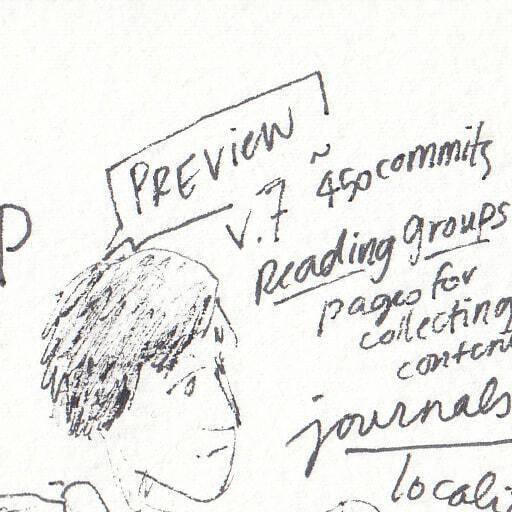 P
PREVIEW
v.7 ~450 commits
Reading groups
pages for
collecting
journals